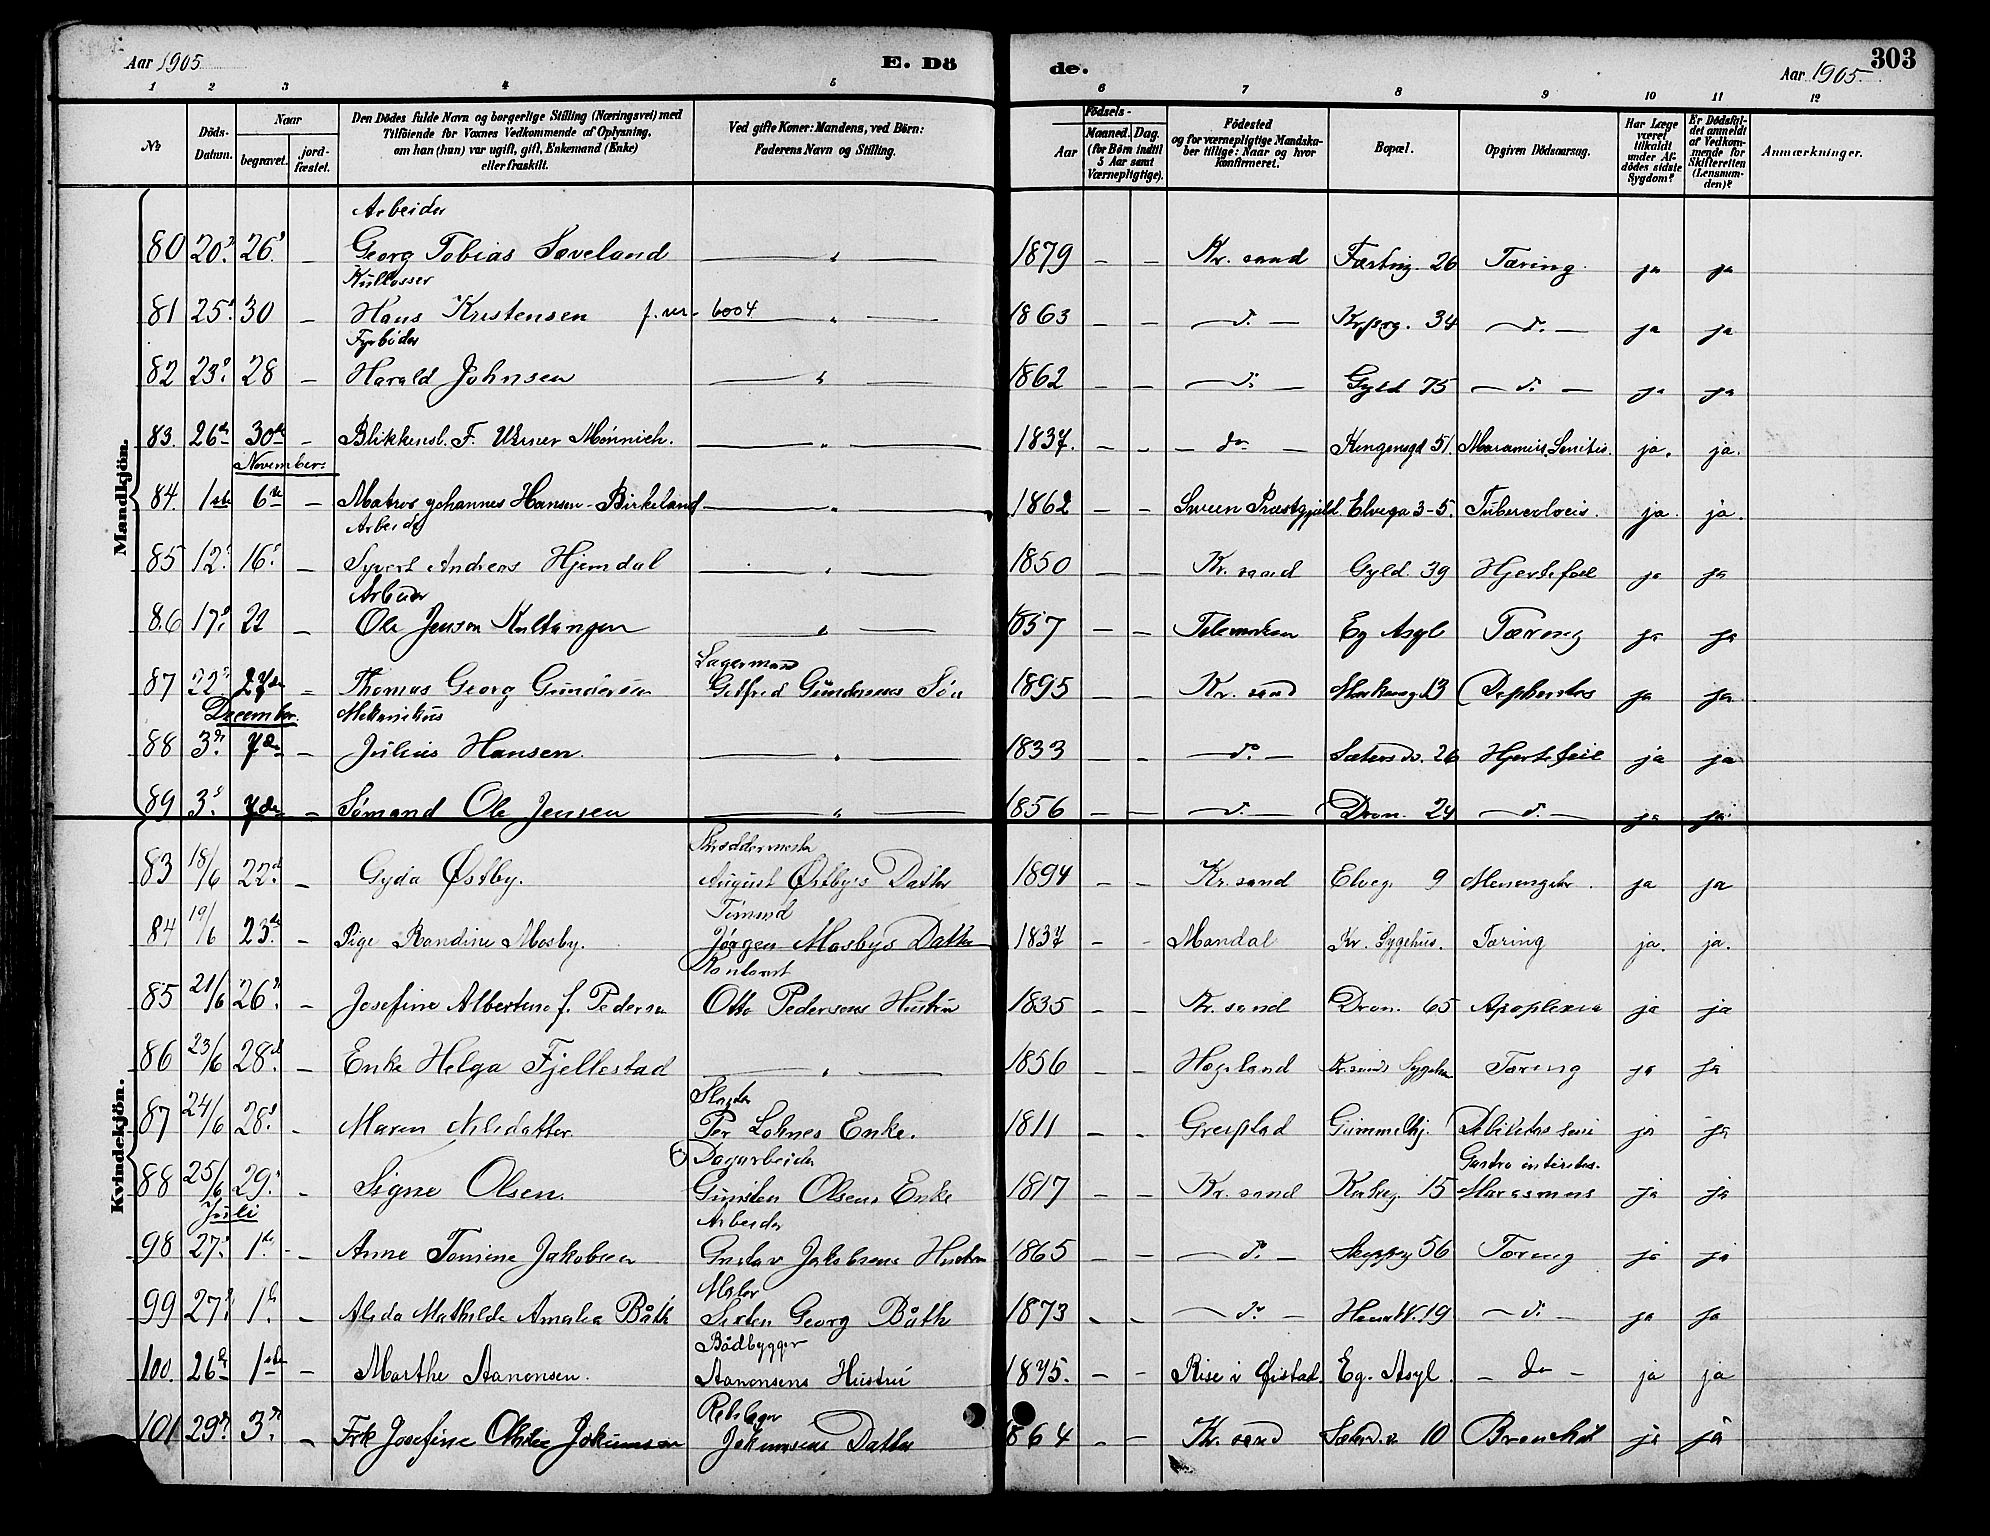 Aar 1905
E. Dö
de.
Aar 1905.
303
1 2 3 4 5 6 7 8 9 10 11 12
№
Döds-Datum.
Naar
begravet.
jord-fæstet.
Den Dödes fulde Navn og borgerlige Stilling (Næringsvei) med
Tilföiende for Voxnes Vedkommende af Oplysning,
om han (hun) var ugift, gift, Enkemand (Enke)
eller fraskilt.
Ved gifte Koner: Mandens, ved Börn:
Faderens Navn og Stilling.
Födsels-
Aar
Maaned. Dag.
(for Börn indtil
5 Aar samt
Værnepligtige).
Födested
og for værnepligtige Mandska-
ber tillige: Naar og hvor
konfirmeret.
Bopæl.
Opgiven Dödsaarsag.
Har Læge
været
tilkaldt
under Af-
dödes sidste
Sygdom?
Er Dödsfal-
det anmeldt
af Vedkom-
mende for
Skifteretten
(Lensman-
den)?
Anmærkninger.
Mandkjön.
Arbeider
80 20. 26. — Georg Tobias Søveland — " — 1879 — — Kr.sand 26 Tæring. ja ja
81 25. 30 — Hans Kristensen 6004 — " — 1863 — — do. — 34 — do. — ja ja
Fyrbøder
82 23. 28 — Harald Johnsen — " — 1862 — — do. — Gyld 75 — do. — ja ja
83. 26de 30te — Blikkensl. F. Werner Mönnich. — " — 1837. — — do — Kongensgd 51. ja. ja.
November:
84. 1ste 6te — Matros Johannes Hansen-Birkeland — " — 1862 — — Elvega 3-5. Tuberculosis. ja. ja.
Arbeider
85 12. 16. — Syvert Andreas Hjemdal — " — 1850 — — Kr.sand Gyld. 39 Hjertefeil ja ja
Arbeider
86 17. 22 — Ole Jensen — " — 1857 — — Telemarken Eg Asyl Tæring ja ja
Lagermand
87 22. 27de — Thomas Georg Gundersen Gotfred Gundersens Søn 1895 — — Kr.sand 13 ja ja
December.
Mekanikus
88 3. 7de — Julius Hansen. — " — 1833 — — do. — Sætersd. 26 Hjertefeil ja ja
89 3. 7de — Sømand Ole Jensen — " — 1856 — — do. — Dron. 24 — do. — ja ja
Kvindekjön.
Skreddermester
83 18/6 22. — Gyda Østby. August Østbys Datter 1894 — — Kr.sand Elveg. 9 ja ja
84 19/6 23de. — Pige Randine Mosby. Jørgen Mosbys Datter 1837 — — Mandal Kr. Sygehus. Tæring ja. ja.
Kontorist
85 21/6 26. — Josefine Albertine f. Pedersen Otto Pedersens Hustru 1835 — — Kr.sand Dron. 65 Apoplexia ja ja
86 23/6 28. — Enke Helga Fjellestad — " — 1856 — — Hægeland Kr.sands Tæring ja ja
Slagter
87 24/6 28. — Maren Nilsdatter Per Lohnes Enke. 1811 — — ja ja
Dagarbeider
Gastro
88 25/6 29. — Signe Olsen. Olsens Enke 1817 — — Kr.sand 15 Marasmus ja ja
Juli
Arbeider
98 27. 1. — Anne Tomine Jakobsen Gustav Jakobsens Hustru 1865 — — do. — 56 Tæring ja ja
Maler
99 27. 1. — Alida Mathilde Amalia Båth Georg Båth 1873 — — do. — 19 — do. — ja ja
Bådbygger
100. 26de 1ste — Marthe Aanonsen. Aanonsens Hustru 1875. — — Eg. Asyl. — do — ja ja
Rebslager
101 29. 3. — Frk Josefine Jokumsen Jokumsens Datter 1864 — — Kr.sand 10 ja ja